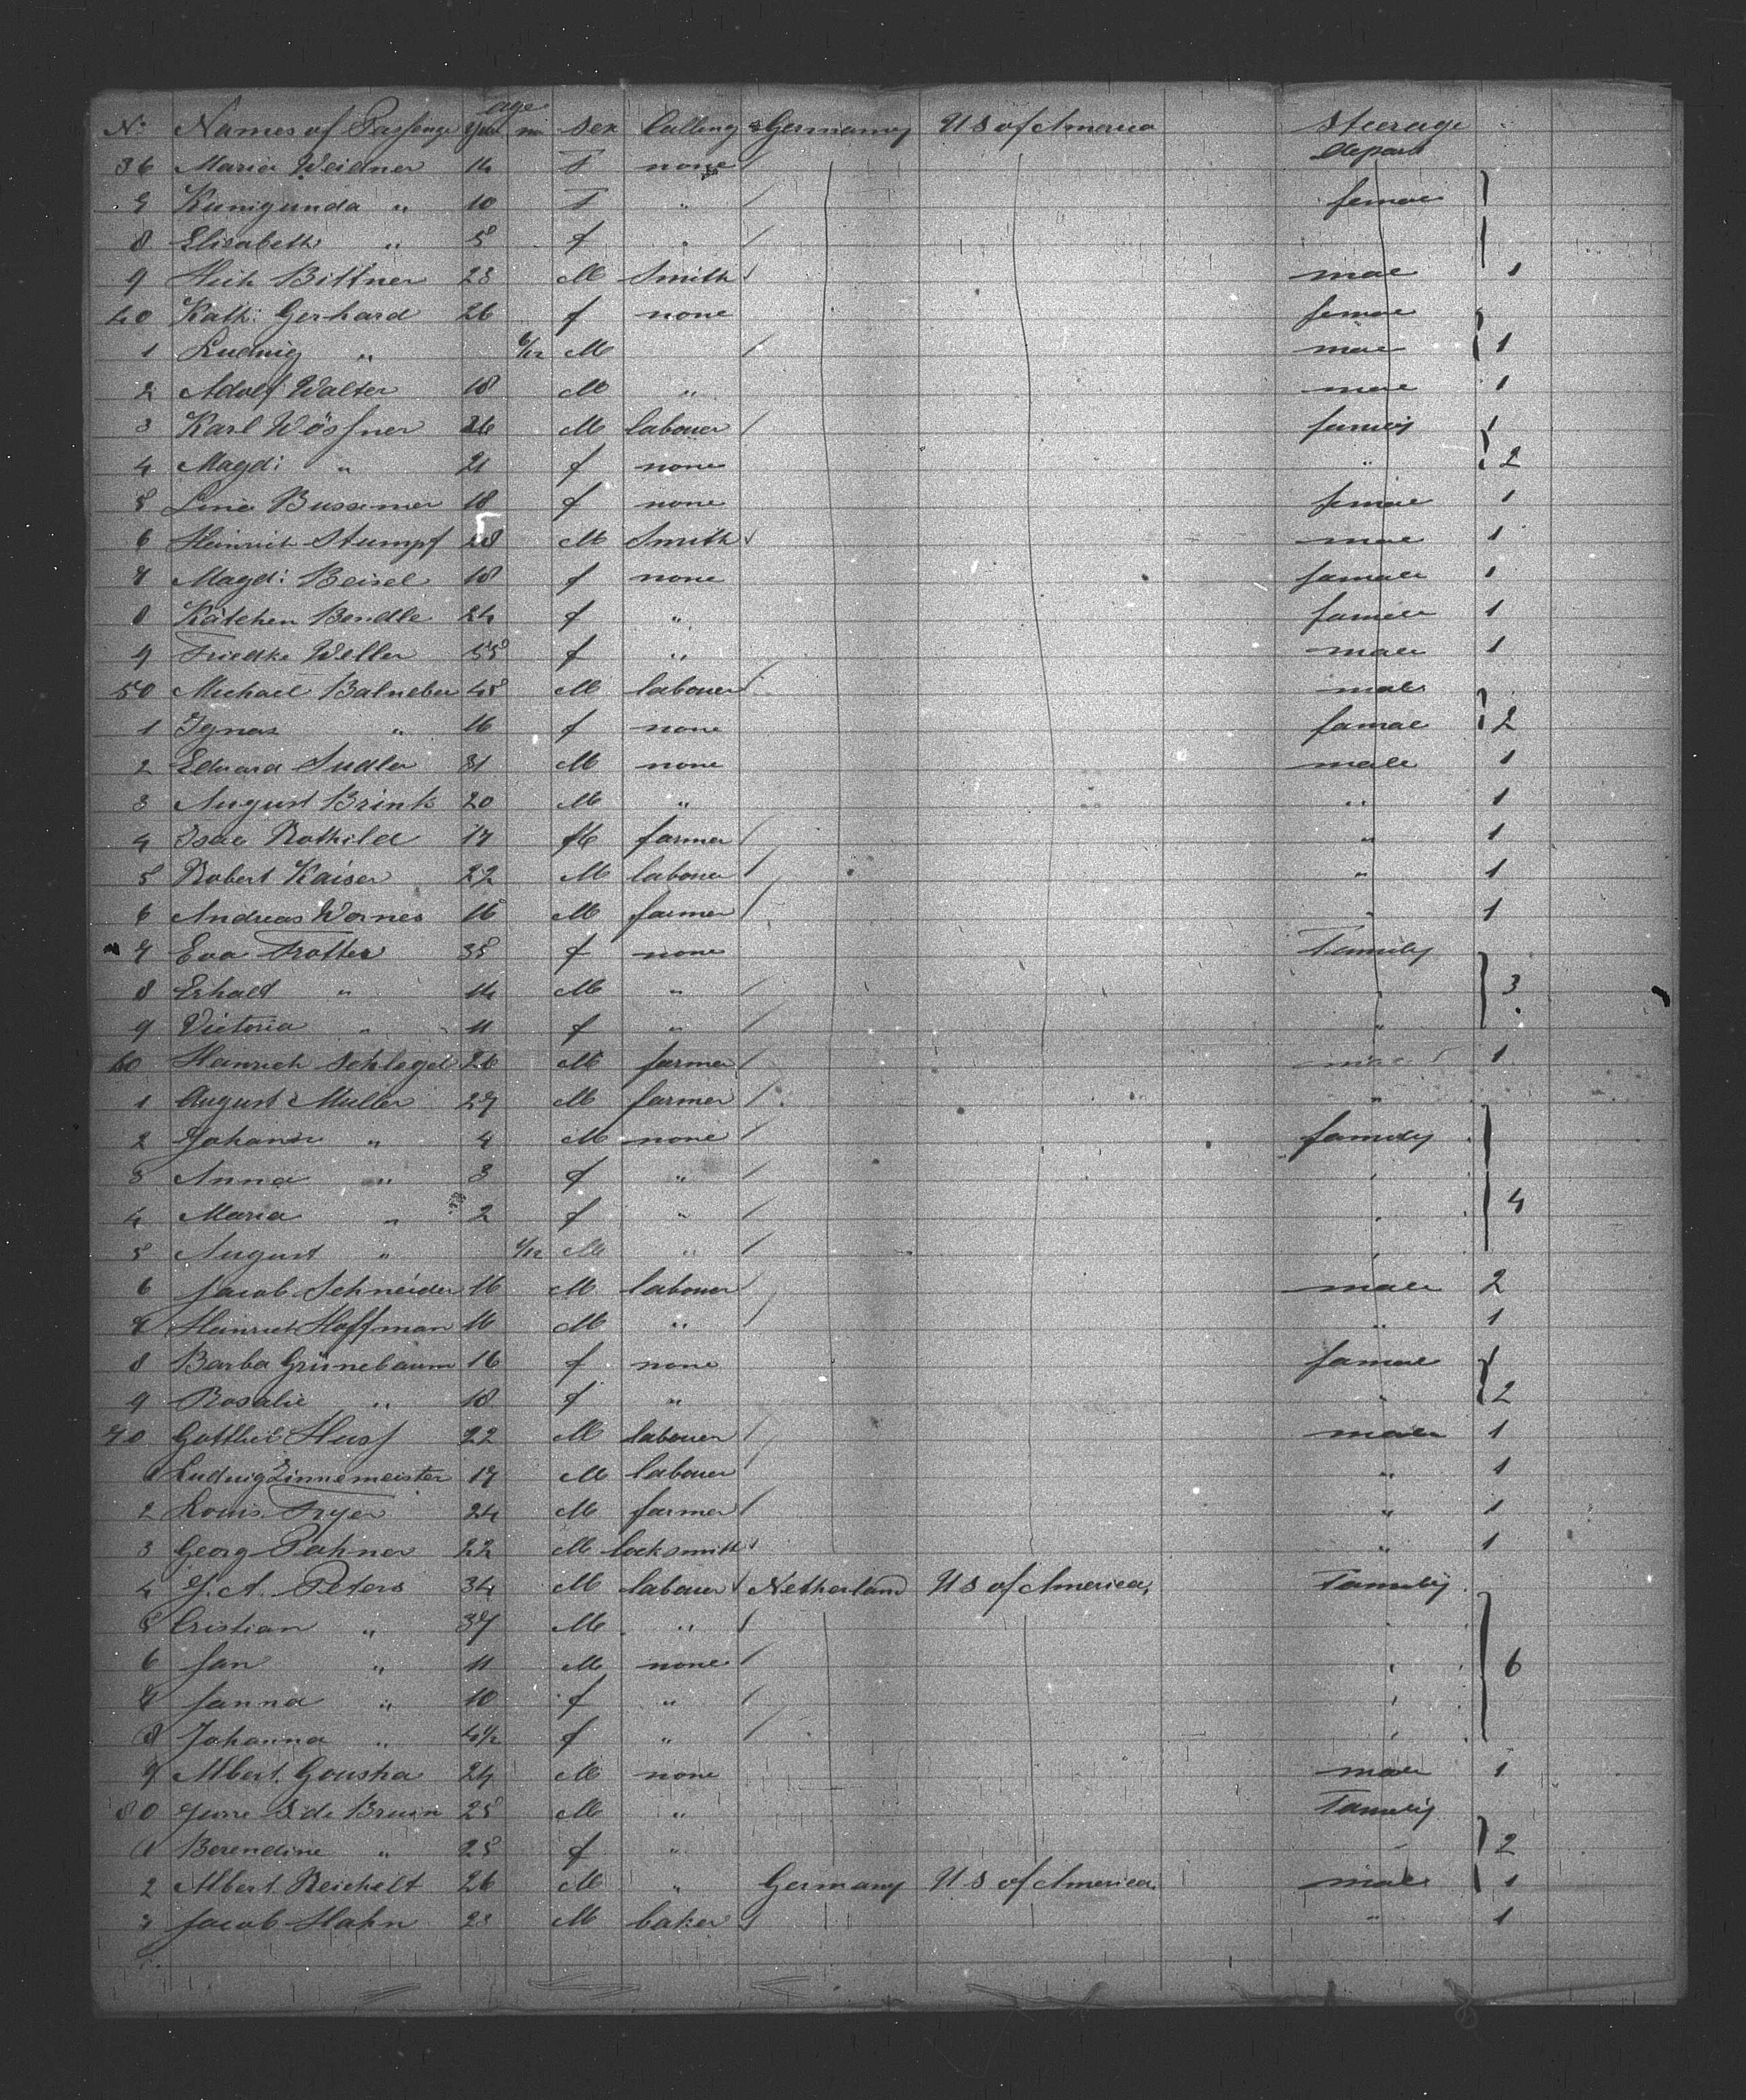 age
No Names of Passenge Year m Sex Calling Germany U S of America Steerage
36 Maria Weidner 14 F none depart
7 Kunigunda " 10 F " femae
8 Elisabeth " 5 f "
9 Hich Bittner 23 M Smith mae 1
40 Kath: Gerhard 26 f none femae
1 Ludwig " 6/12 M mae 1
2 Adolf Walter 18 M " mae 1
3 Karl Wössner 26 M labouer famiey 1
4 Magd: " 21 f none " 2
5 Lina Bussemer 18 f none femae 1
6 Heinrich Stumpf 28 M Smith mae 1
7 Magd: Beisel 18 f none famaee 1
8 Kätchen Bendle 24 f " famaee 1
9 Friedke Weller 55 f " maee 1
50 Michael Balneber 45 M labouer male
1 Ignas " 16 f none famae 2
2 Eduard Sudler 31 M none male 1
3 August Brink 20 M " " 1
4 Isac Rothild 17 M farmer " 1
5 Robert Kaiser 22 M labouer " 1
6 Andreas Wornes 16 M farmer " 1
7 Eva Trotter 35 f none Famiely
8 Erhalt " 14 M " " 3
9 Victoria " 11 f " "
60 Heinrich Schlegel 26 M farmer 1
1 August Muller 27 M farmer "
2 Johann " 4 M none famiely
3 Anna " 3 f " "
4 Maria " 2 f " " 4
5 August " 6/12 M " "
6 Jacob Schneider 16 M labouer maee 2
7 Heinrich Hoffman 16 M " " 1
8 Barba Grünebaum 16 f none famae
9 Rosalie " 18 f " " 2
70 Gottlieb Huss 22 M labouer maee 1
1 Ludwig Zinnemeister 17 M labouer " 1
2 Louis Fryer 24 M farmer " 1
3 Georg Pahner 22 M locksmith " 1
4 J. A. Peters 34 M labouer Netherland U S of America Famiely
5 Cristian " 37 M " "
6 Jan " 11 M none " 6
7 Janna " 10 f " "
8 Johanna " 4 1/2 f " "
9 Albert Gouska 24 M none maee 1
80 Jurre S. de Bruin 25 M " Famiely
1 Berendine " 25 f " " 2
2 Albert Reichelt 26 M " Germany U S of America male 1
3 Jacob Hahn 23 M baker " 1